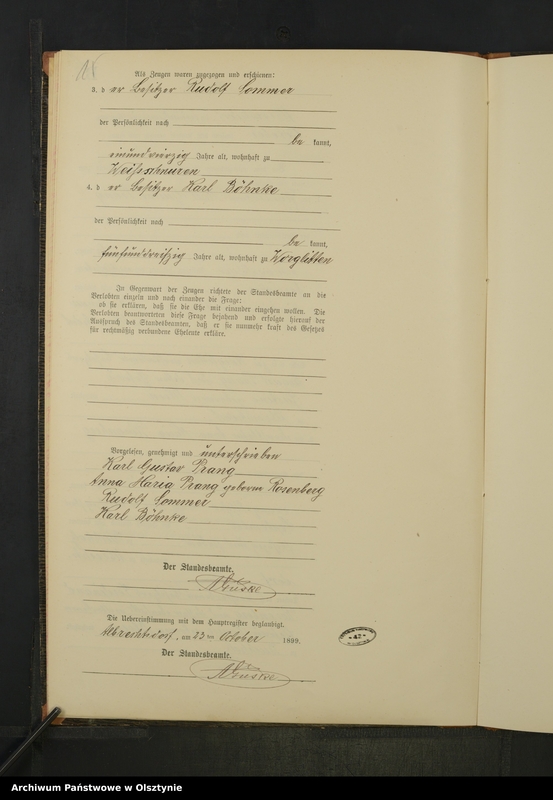 15
Als Zeugen waren zugezogen und erschienen:
3. d er Besitzer Rudolf Sommer
der Persönlichkeit nach
be kannt,
einundvierzig Jahre alt, wohnhaft zu
Weischnuren
4. d er Besitzer Karl Böhnke
der Persönlichkeit nach
be kannt,
fünfunddreißig Jahre alt, wohnhaft zu Worglitten
In Gegenwart der Zeugen richtete der Standesbeamte an die
Verlobten einzeln und nach einander die Frage:
ob sie erklären, daß sie die Ehe mit einander eingehen wollen. Die
Verlobten beantworteten diese Frage bejahend und erfolgte hierauf der
Ausspruch des Standesbeamten, daß er sie nunmehr kraft des Gesetzes
für rechtmäßig verbundene Eheleute erkläre.
Vorgelesen, genehmigt und unterschrieben
Karl Gustav Prang
Anna Maria Prang geborene Rosenberg
Rudolf Sommer
Karl Böhnke
Der Standesbeamte.
Die Uebereinstimmung mit dem Hauptregister beglaubigt.
Albrechtsdorf, am 23ten October 1899.
Der Standesbeamte.
Archiwum Państwowe w Olsztynie